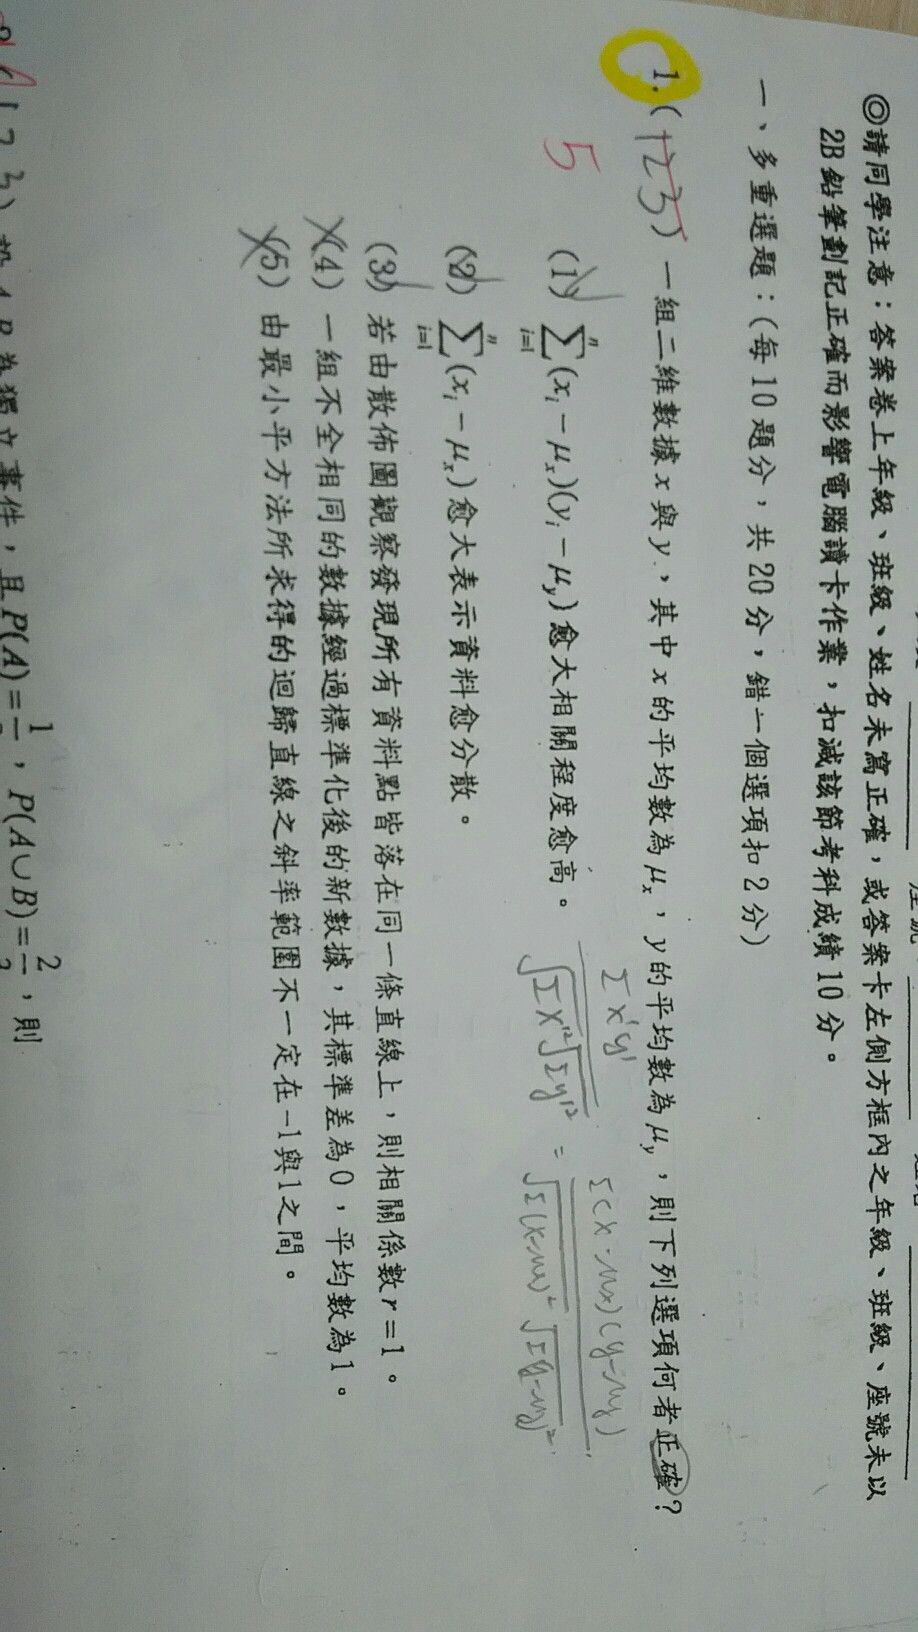 ◎請同學注意：答案卷上年級、班級、姓名未寫正確，或答案卡左側方框內之年級、班級、座號未以
2B鉛筆劃記正確而影響電腦讀卡作業，扣減該節考科成績10分。
一、多重選題：(每10題分，共20分，錯一個選項扣2分)
1. (123) 一組二維數據x與y，其中x的平均數為μx，y的平均數為μy，則下列選項何者正確？
5
Σx'y' / √Σx'² √Σy'² = Σ(x-μx)(y-μy) / √Σ(x-μx)² √Σ(y-μy)²
(1) ∑ⁿᵢ₌₁(xᵢ-μx)(yᵢ-μy)愈大相關程度愈高。
(2) ∑ⁿᵢ₌₁(xᵢ-μx)愈大表示資料愈分散。
(3) 若由散佈圖觀察發現所有資料點皆落在同一條直線上，則相關係數r=1。
(4) 一組不全相同的數據經過標準化後的新數據，其標準差為0，平均數為1。
(5) 由最小平方法所求得的迴歸直線之斜率範圍不一定在-1與1之間。
(123) 設A,B為獨立事件，且P(A)=1，P(A∪B)=2，則